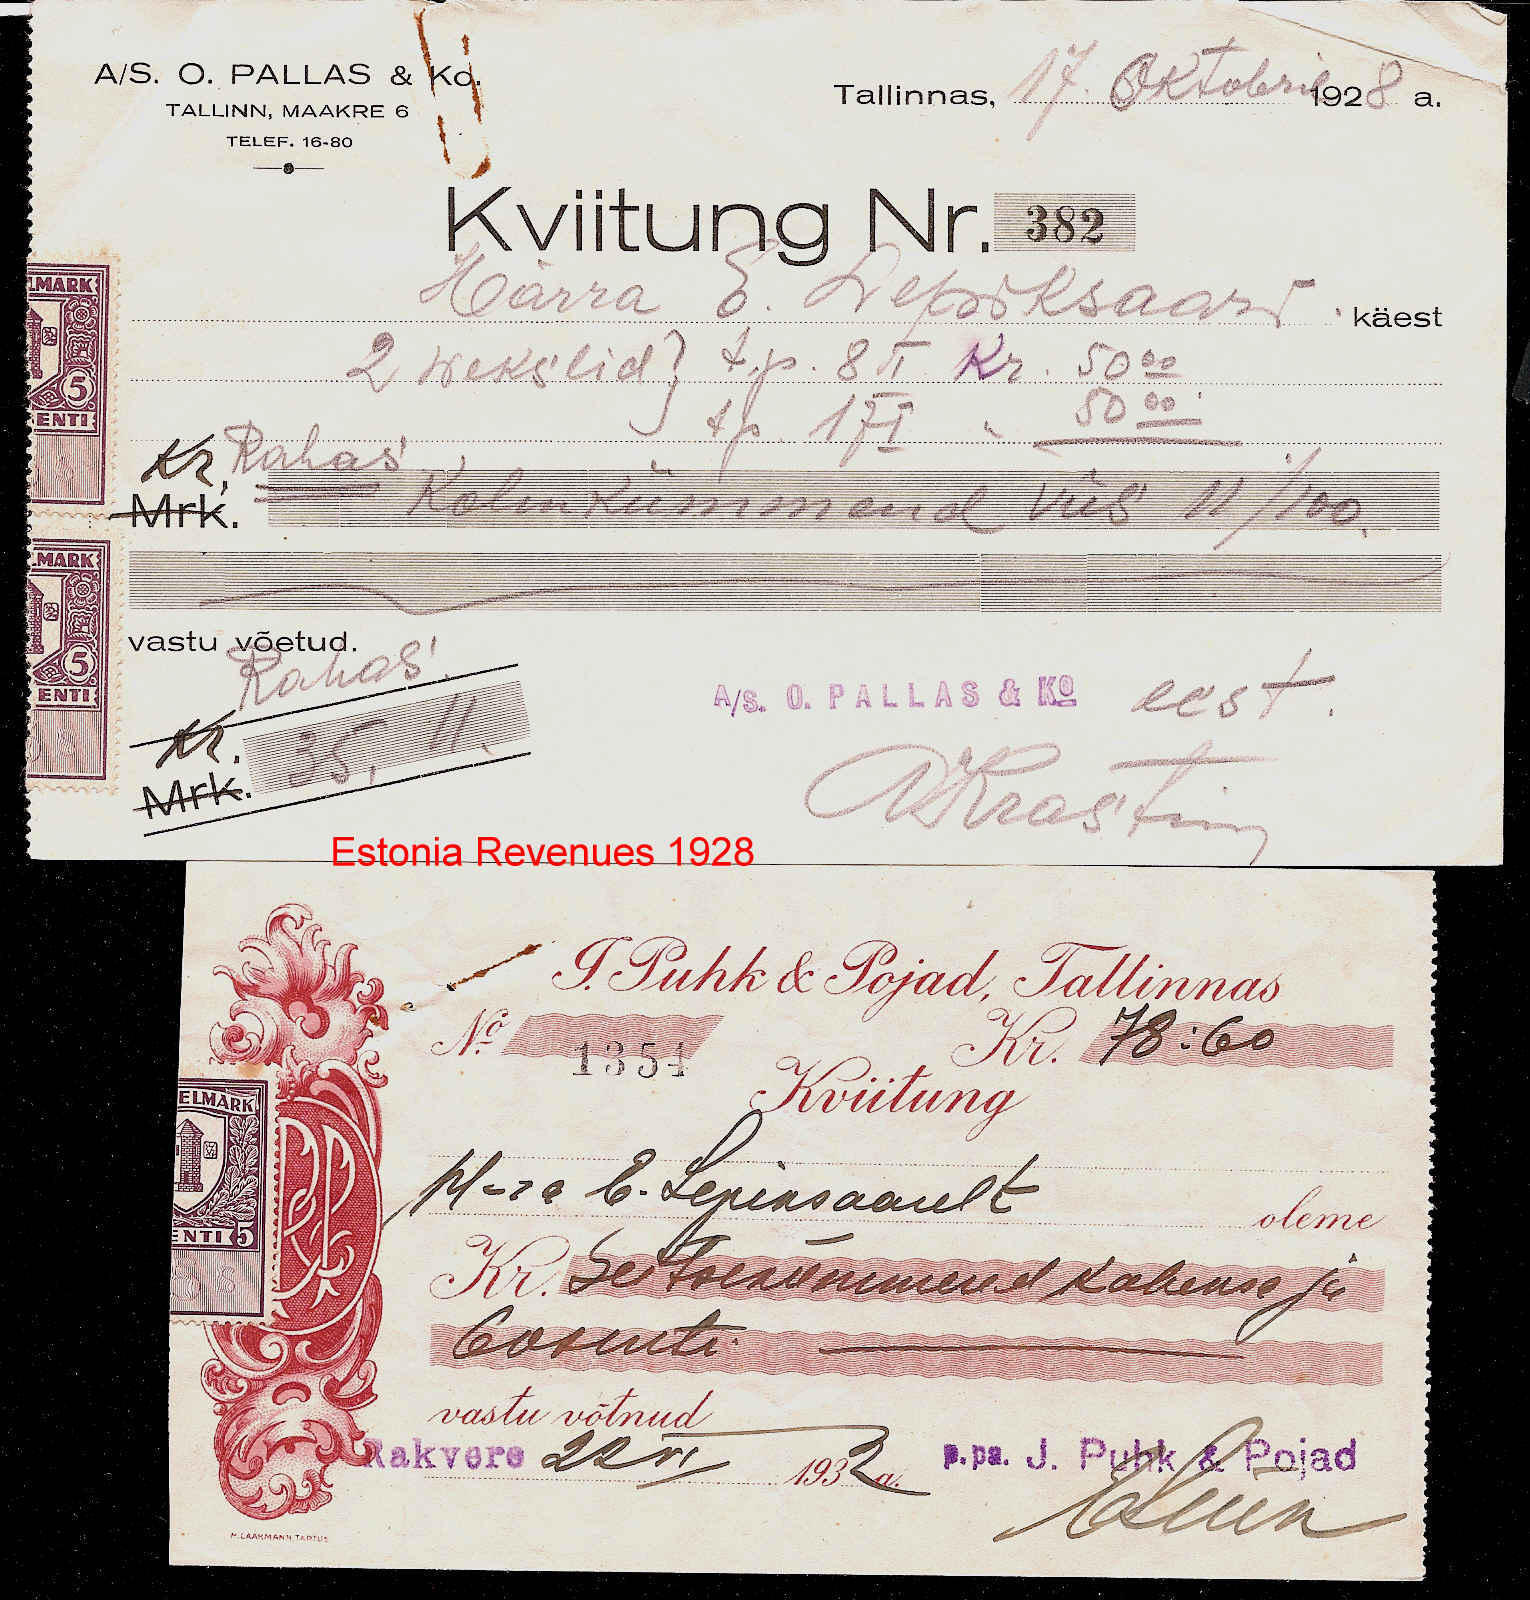 A/S. O. PALLAS & Ko.
TALLINN, MAAKRE 6
TELEF. 16-80
Tallinnas, 17. Oktobril 1928 a.
Kviitung Nr. 382
Härra E. Lepiksaar käest
2 wekslid } t.p. 8 II Kr. 50 00
t.p. 17 I " 50 00
Rahas
Kr.
Mrk. Kolmkümmend viis 11/100.
vastu võetud.
Rahas
Kr.
Mrk. 35, 11.
A/S. O. PALLAS & Ko eest.
ELMARK
5
ENTI
ELMARK
5
ENTI
Estonia Revenues 1928
J. Puhk & Pojad, Tallinnas
No 1354 Kr. 78:60
Kviitung
E. Lepiksaarelt oleme
Kr. Seitsekümmend kaheksa ja
60 senti
vastu võtnud
Rakvere 22 VI 1932 a.
p.pa. J. Puhk & Pojad
ELMARK
ENTI 5
H. LAAKMANN, TARTUS